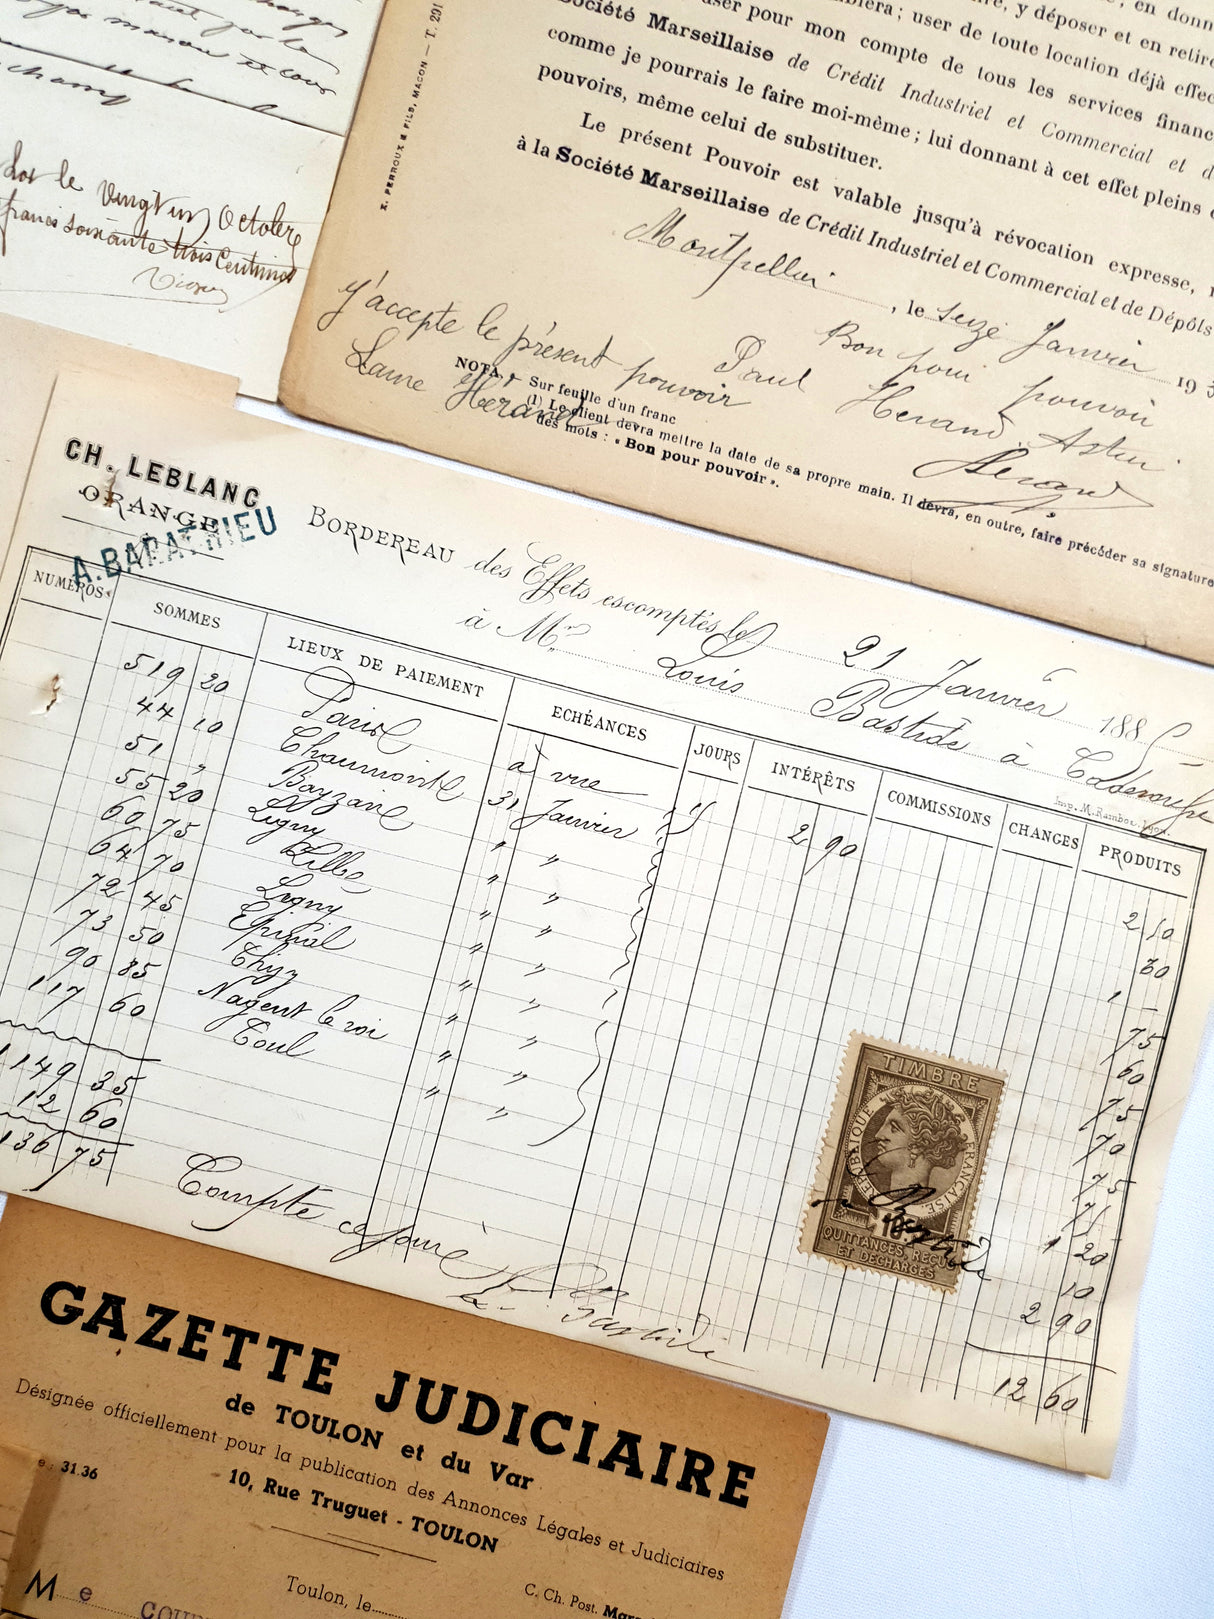 vingt un Octobre
francs soixante trois Centimes
X. PERROUX & FILS, MACON — T. 291
; user de toute location déjà
pour mon compte de tous les services
Société Marseillaise de Crédit Industriel et Commercial et
comme je pourrais le faire moi-même ; lui donnant à cet effet pleins
pouvoirs, même celui de substituer.
Le présent Pouvoir est valable jusqu'à révocation expresse,
à la Société Marseillaise de Crédit Industriel et Commercial et de Dépôts
Montpellier , le seize Janvier 19
Bon pour pouvoir
j'accepte le présent pouvoir
Paul
NOTA
Sur feuille d'un franc
(1) Le client devra mettre la date de sa propre main. Il devra, en outre, faire précéder sa signature
des mots : « Bon pour pouvoir ».
CH. LEBLANC
ORANGE
A. BARATHIEU
BORDEREAU des Effets escomptés le 21 Janvier 188
à Mr Louis Bastide à
Imp. M. Rambos, Lyon.
NUMÉROS SOMMES LIEUX DE PAIEMENT ECHÉANCES JOURS INTÉRÊTS COMMISSIONS CHANGES PRODUITS
519 20 Paris à vue 2 90 2 10
44 10 Chaumont 31 Janvier 60
51 " " "
55 20 Ligny " " 75
60 75 Lille " " 60
64 70 Ligny " " 75
72 45 Epinal " " 70
73 50 Thizy " " 75
90 85 Nogent le roi " " 1 20
117 60 Toul " " 10
2 90
1149 35
12 60
12 60
136 75
Compte à
TIMBRE
RÉPUBLIQUE FRANÇAISE
10
QUITTANCES, REÇUS
ET DÉCHARGES
GAZETTE JUDICIAIRE
de TOULON et du Var
Désignée officiellement pour la publication des Annonces Légales et Judiciaires
10, Rue Truguet - TOULON
31.36
C. Ch. Post.
Toulon, le
Me